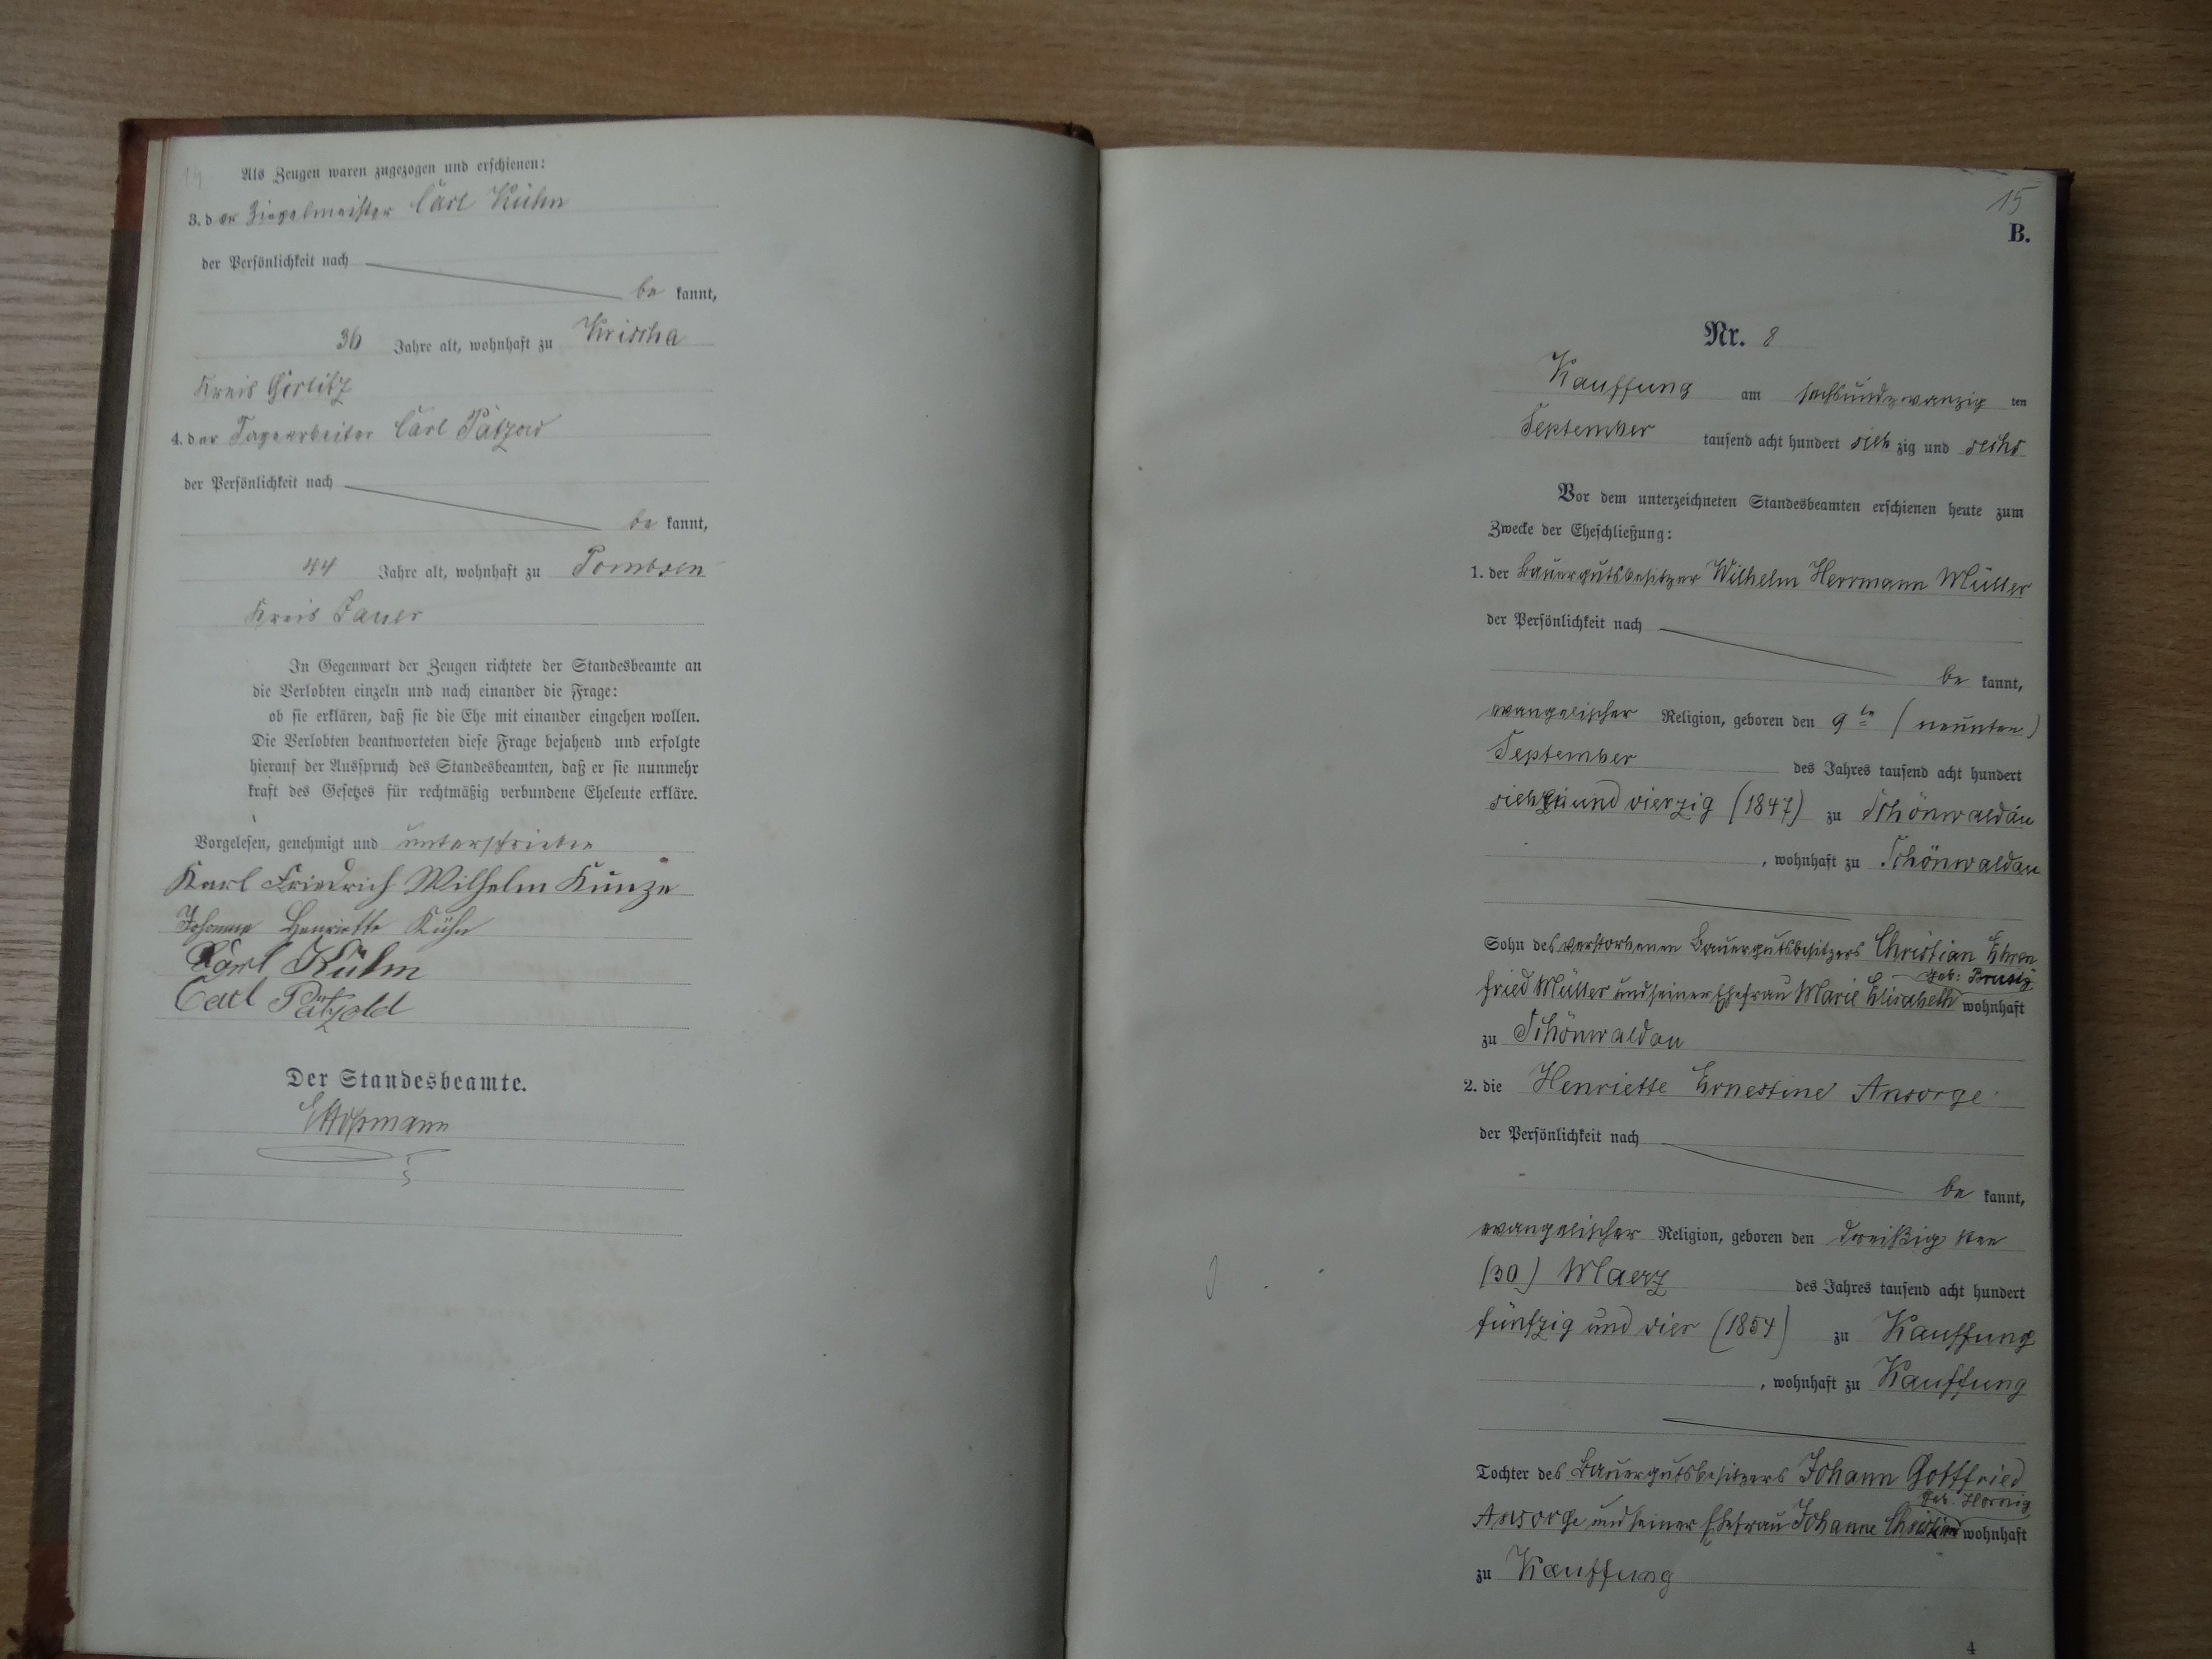 19
Als Zeugen waren zugezogen und erschienen:
3. der Ziegelmeister Carl Kühn
der Persönlichkeit nach
be kannt,
36 Jahre alt, wohnhaft zu Krischa
Kreis Görlitz
4. der Tagearbeiter Carl Pätzold
der Persönlichkeit nach
be kannt,
44 Jahre alt, wohnhaft zu Pombsen
Kreis Jauer
In Gegenwart der Zeugen richtete der Standesbeamte an
die Verlobten einzeln und nach einander die Frage:
ob sie erklären, daß sie die Ehe mit einander eingehen wollen.
Die Verlobten beantworteten diese Frage bejahend und erfolgte
hierauf der Ausspruch des Standesbeamten, daß er sie nunmehr
kraft des Gesetzes für rechtmäßig verbundene Eheleute erkläre.
Vorgelesen, genehmigt und unterschrieben
Karl Friedrich Wilhelm Kunze
Johanne Henriette Kühn
Karl Kühn
Carl Pätzold
Der Standesbeamte.
15
B.
Nr. 8
Kauffung am sechsundzwanzig ten
September tausend acht hundert sieb zig und sechs
Vor dem unterzeichneten Standesbeamten erschienen heute zum
Zwecke der Eheschließung:
1. der Bauergutsbesitzer Wilhelm Herrmann Müller
der Persönlichkeit nach
be kannt,
evangelischer Religion, geboren den 9te (neunten)
September des Jahres tausend acht hundert
sieben und vierzig (1847) zu Schönwaldau
, wohnhaft zu Schönwaldau
Sohn des verstorbenen Bauergutsbesitzers Christian Ehren
geb: Brusig
fried Müller und seiner Ehefrau Marie Elisabeth wohnhaft
zu Schönwaldau
2. die Henriette Ernestine Ansorge
der Persönlichkeit nach
be kannt,
evangelischer Religion, geboren den dreißig sten
(30) Maerz des Jahres tausend acht hundert
fünfzig und vier (1854) zu Kauffung
, wohnhaft zu Kauffung
Tochter des Bauergutsbesitzers Johann Gottfried
geb. Hornig
Ansorge und seiner Ehefrau Johanne wohnhaft
zu Kauffung
4